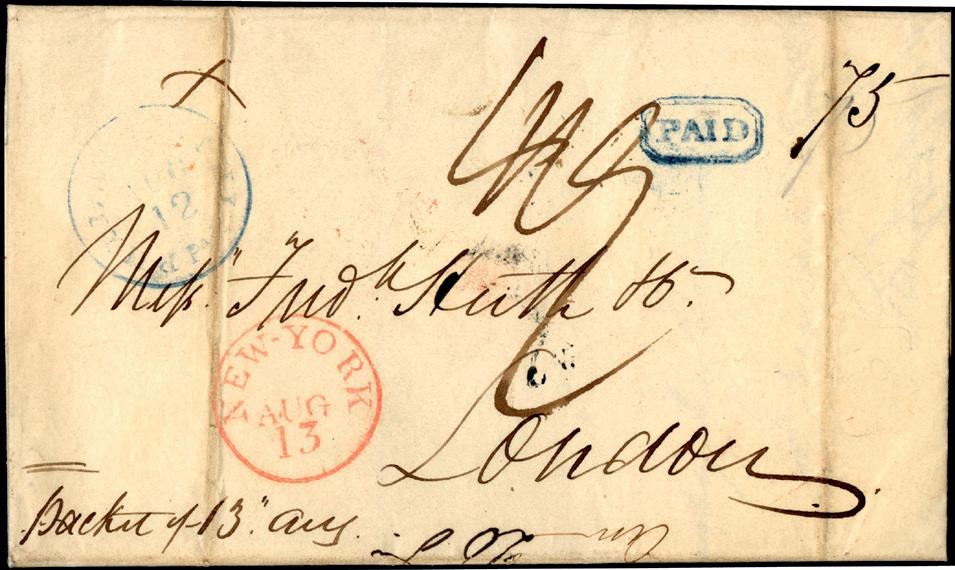 75
PAID
12
Messrs. Fredk. Huth & Co.
NEW-YORK
AUG
13
London
Packet of 13" Aug.